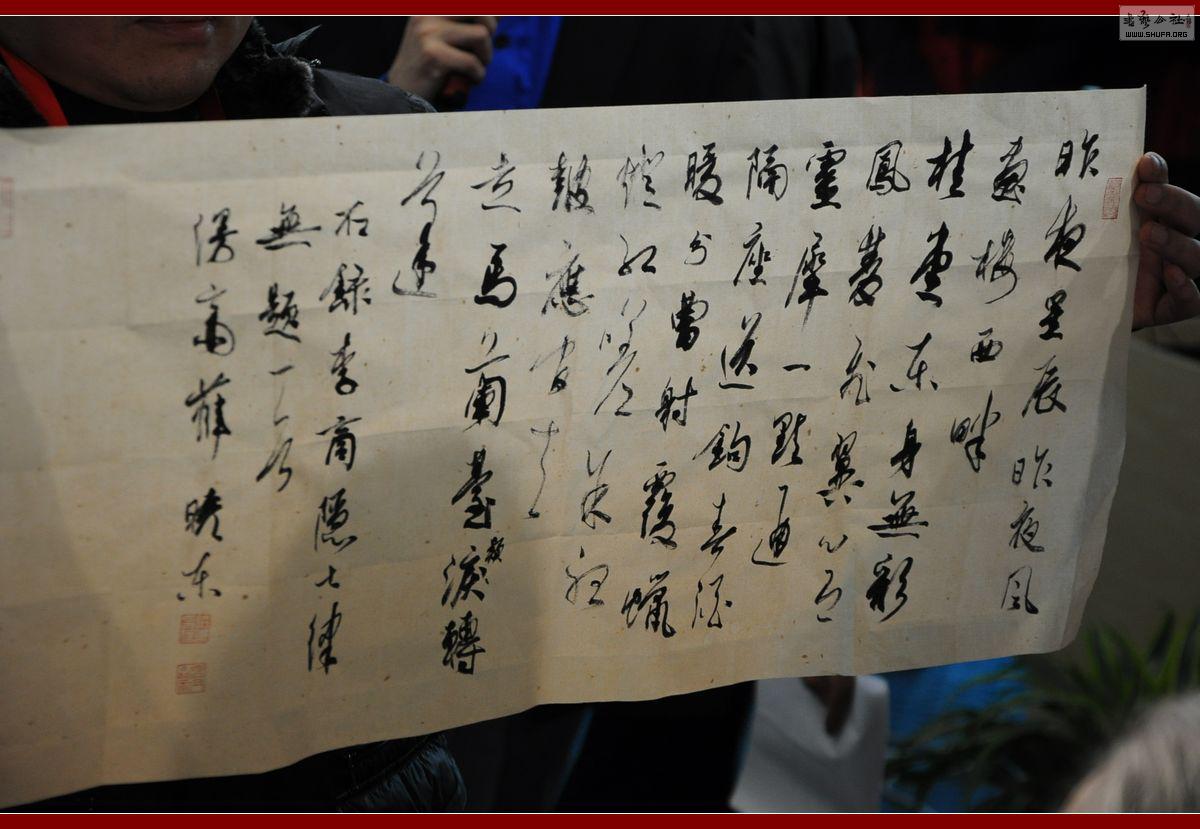 書法公社
WWW.SHUFA.ORG
昨夜星辰昨夜風
畫樓西畔
桂堂東身無彩
鳳雙飛翼心有
靈犀一點通
隔座送鉤春酒
暖分曹射覆蠟
燈紅嗟余聽
鼓應官去
走馬蘭臺淚類轉
蓬
右錄李商隱七律
無題一首
齋薛曉東